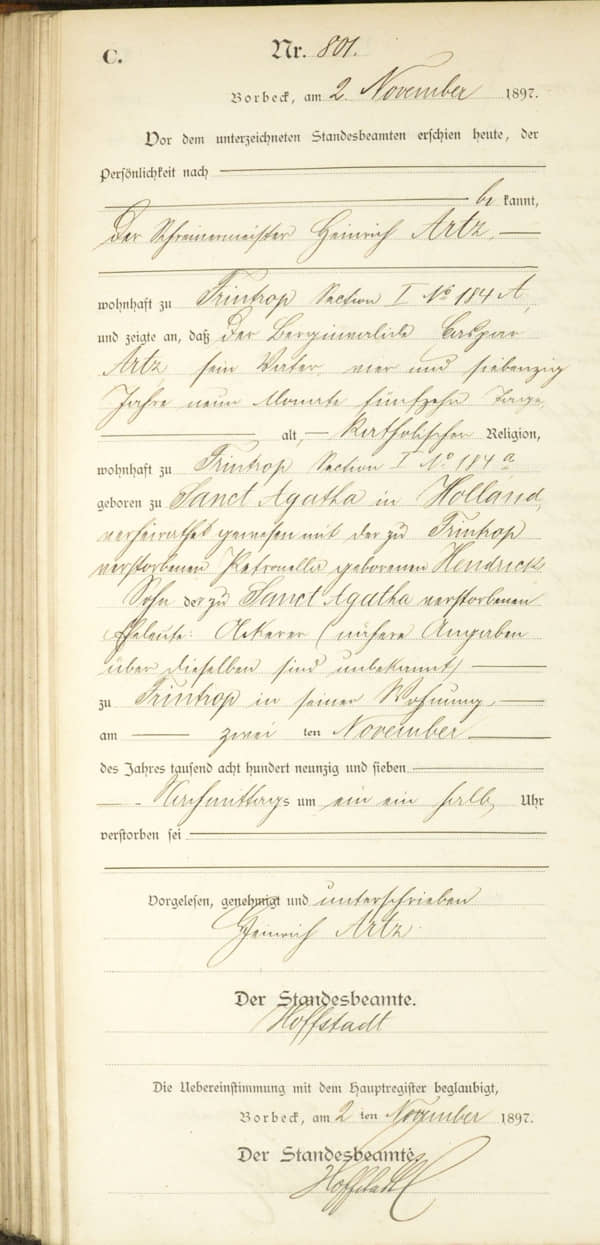 C.
Nr. 801.
Borbeck, am 2. November 1897.
Vor dem unterzeichneten Standesbeamten erschien heute, der
Persönlichkeit nach
be kannt,
der Schreinermeister Heinrich Artz
wohnhaft zu Frintrop Section I No 184 A,
und zeigte an, daß der Berginvalide Caspar
Artz, sein Vater, vier und siebenzig
Jahre neun Monate fünfzehn Tage,
alt, katholischer Religion,
wohnhaft zu Frintrop Section I No 184 a
geboren zu Sanct Agatha in Holland,
verheirathet gewesen mit der zu Frintrop
verstorbenen Petronella geborenen Hendricks
Sohn der zu Sanct Agatha verstorbenen
Eheleute: Ackerer (nähere Angaben
über dieselben sind unbekannt)
zu Frintrop in seiner Wohnung,
am zwei ten November
des Jahres tausend acht hundert neunzig und sieben
Nachmittags um ein ein halb Uhr
verstorben sei
Vorgelesen, genehmigt und unterschrieben
Heinrich Artz.
Der Standesbeamte.
Hoffstadt
Die Uebereinstimmung mit dem Hauptregister beglaubigt,
Borbeck, am 2 ten November 1897.
Der Standesbeamte.
Hoffstadt